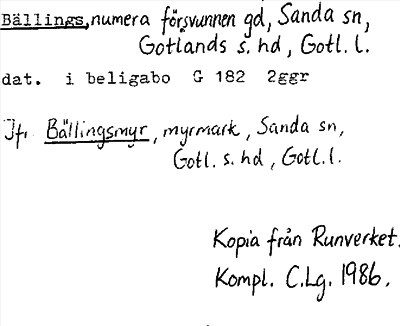 Bällings, numera försvunnen gd, Sanda sn,
Gotlands s. hd, Gotl. l.
dat. i beligabo G 182 2ggr
Jfr Bällingsmyr, myrmark, Sanda sn,
Gotl. s. hd, Gotl. l.
Kopia från Runverket.
Kompl. C.Lg. 1986.